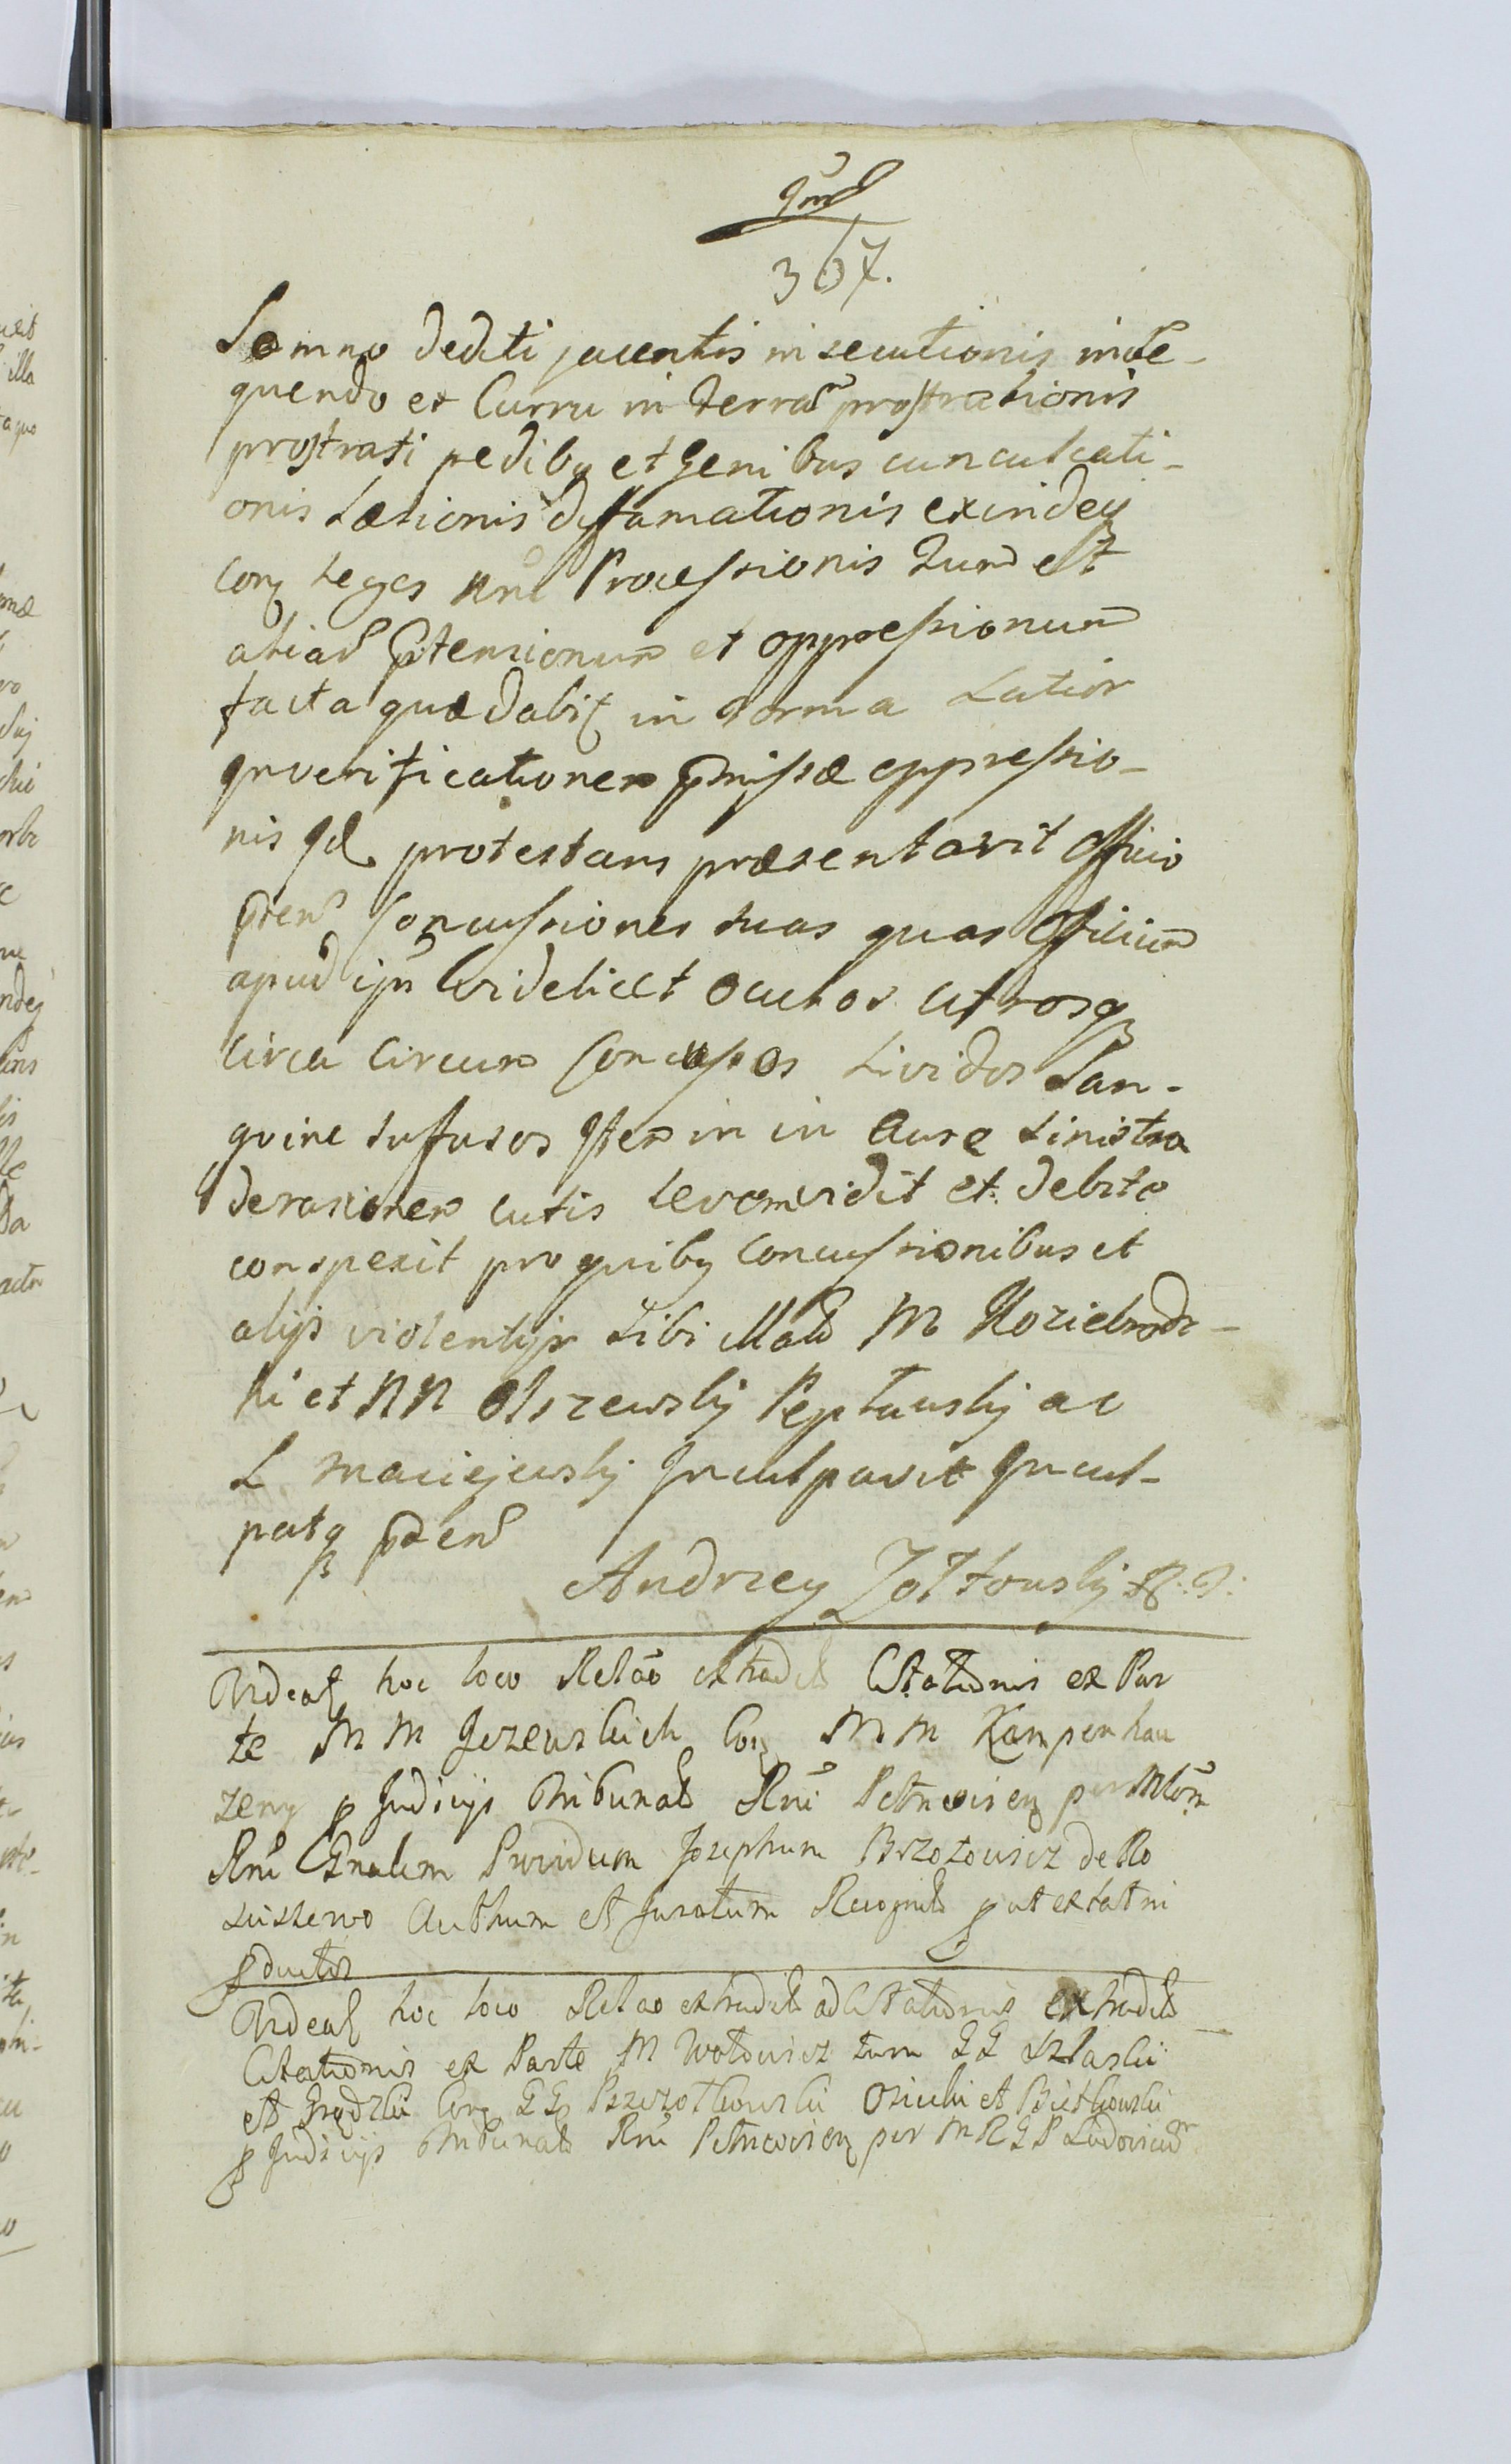 307.
Somno dediti jacentis insecutionis inse-
quendo et Curru in terram prostrationis
prostrati pediby et Genibus cunculcati-
onis Læsionis diffamationis exindeq
conq Leges Processionis tum et
aliar Ptensionum et oppressionum
facta quæ dabit in forma Latior
Inverificationem Pmissæ oppressio-
nis Id protestans præsentavit Officio
Pten Concussiones suas quas Officium
apud ipm videlicet oculos utrosq
circa circum Concussos Lividos San-
guine sufusos Item in in Aure Sinistra
derasionem cutis Levem vidit et debite
conspexit pro quiby Concussionibus et
alijs violentijs Sibi illatis M Koziebrodz-
ki et NN Olszewskij Peptowskij ac
L Maciejewskij Inculpavit Incul-
patq pten
Andrzey Zołtowskij
Videat hoc loco Relao extradit Citationis ex Par
te M M Jezewskich Con M M Kampenhau
zeny p Judicijs Tribunal Rni Petricovien per Mtm
Rni Gnalem Providum Josephum Brzozowicz de Ro
ziszewo Authum et Juratum Recognit put extat in
pductis
Videat hoc loco Relao extradit ad Citationis extradit
Citationis ex Parte M Wołowicz tum GG Szlaskii
et Grądzkii Conq GG Przezotkowskii Osiecki et Bietkowskii
p Judicijs Tribunal Rni Petricovien per M R G P Ludovicum